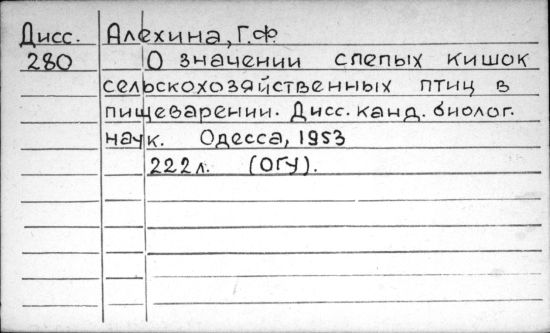 Дисс. Алехина, Г.Ф.
280 О значении слепых кишок
сельскохозяйственных птиц в
пищеварении. Дисс. канд. биолог.
наук. Одесса, 1953
222л. (ОГУ).